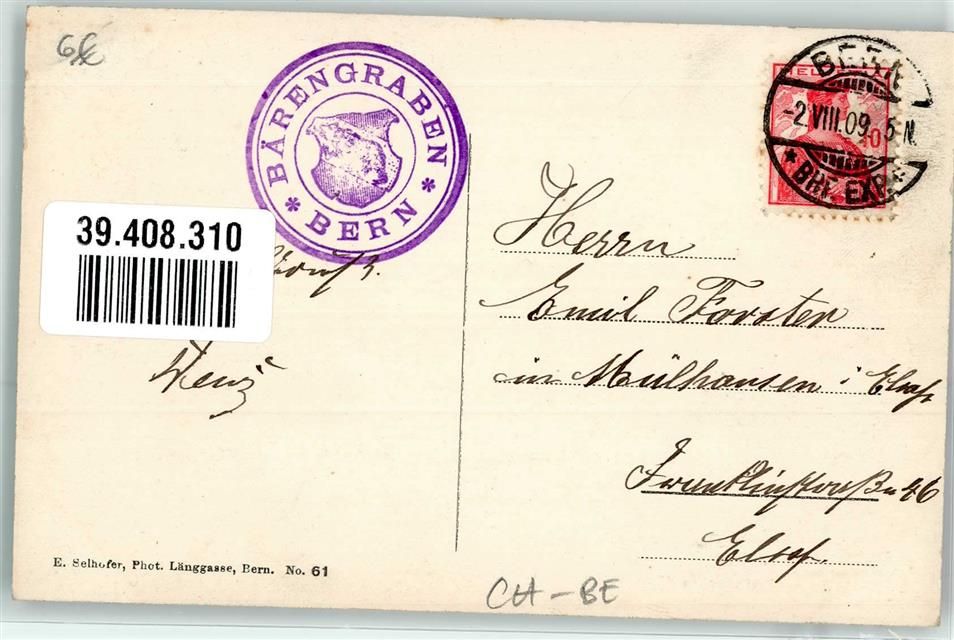 BÄRENGRABEN
* BERN *
39.408.310
HEL
10
BERN
-2.VIII.09. 5 N.
* BHF. EXP. *
Herrn
Emil Forster
in Mülhausen i Elsaß
Franklinstraße 46
Elsaß.
E. Selhofer, Phot. Länggasse, Bern. No. 61
CH-BE